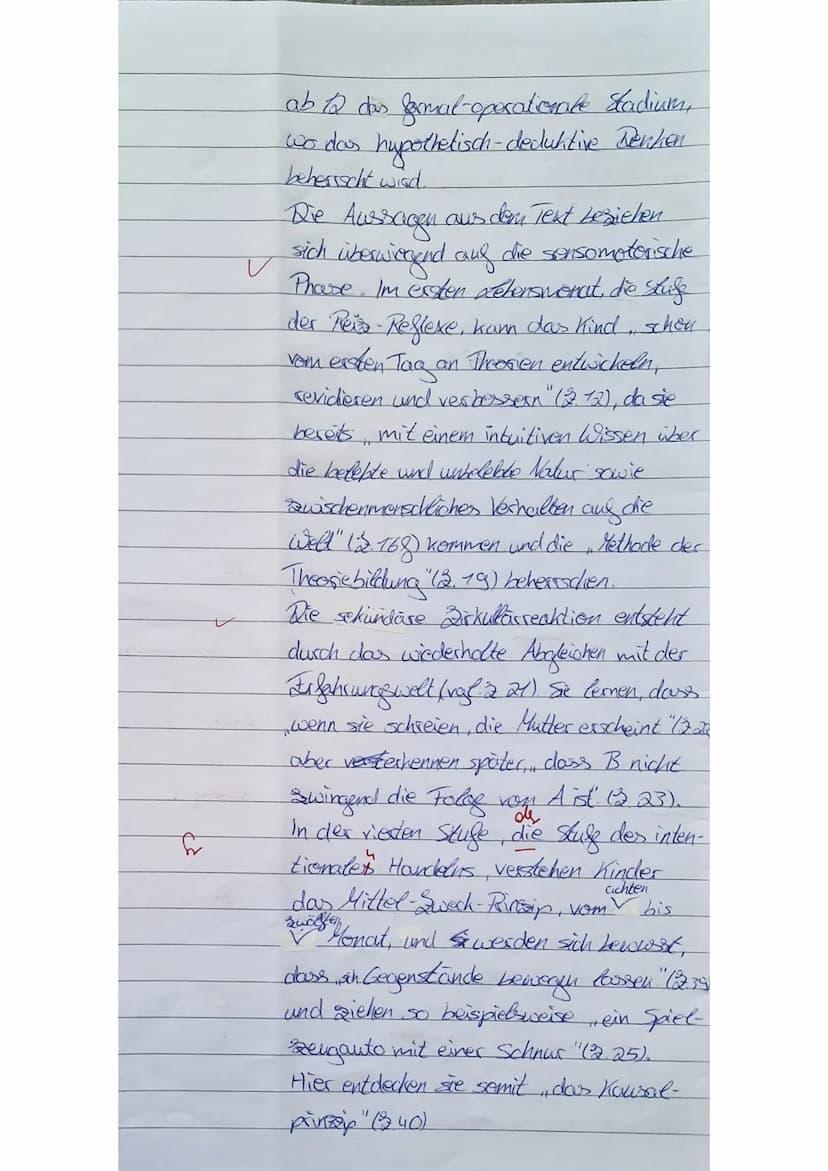 ab 12 das formal-operationale Stadium,
wo das hypothetisch-deduktive Denken
beherrscht wird.
Die Aussagen aus dem Text beziehen
sich überwiegend auf die sensomotorische
Phase. Im ersten Lebensmonat, die Stufe
der Reiz-Reflexe, kann das Kind „schon
vom ersten Tag an Theorien entwickeln,
revidieren und verbessern" (Z. 12), da sie
bereits „mit einem intuitiven Wissen über
die belebte und unbelebte Natur sowie
zwischenmenschliches Verhalten auf die
Welt" (Z. 16f) kommen und die „Methode der
Theoriebildung" (Z. 19) beherrschen.
Die sekundäre Zirkulärreaktion entsteht
durch das wiederholte Abgleichen mit der
Erfahrungswelt (vgl. Z. 21). Sie lernen, dass
„wenn sie schreien, die Mutter erscheint" (Z.
aber erkennen später, „dass B nicht
zwingend die Folge von A ist" (Z. 23).
der
In der vierten Stufe, die Stufe des inten-
n
tionales Handelns, verstehen Kinder
das Mittel-Zweck-Prinzip, vom bis
achten
zwölften
Monat, und werden sich bewusst,
dass „sich Gegenstände bewegen lassen" (Z. 39
und ziehen so beispielsweise „ein Spiel-
zeugauto mit einer Schnur" (Z. 25).
Hier entdecken sie somit „das Kausal-
prinzip" (Z. 40)